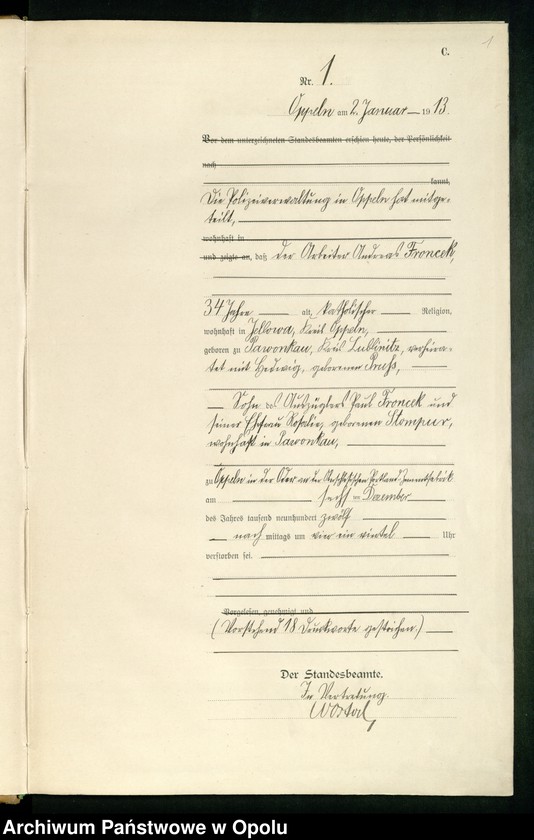 C.
1
Nr. 1.
Oppeln am 2. Januar 1913.
Vor dem unterzeichneten Standesbeamten erschien heute, der Persönlichkeit
nach
kannt,
Die Polizeiverwaltung in Oppeln hat mitge-
teilt,
wohnhaft in
und zeigte an, daß der Arbeiter Andreas Froncek,
34 Jahre alt, katholischer Religion,
wohnhaft in Jellowa, Kreis Oppeln,
geboren zu Pawonkau, Kreis Lublinitz, verheira-
tet mit Hedwig, geborenen
Sohn des Auszüglers Paul Froncek und
seiner Ehefrau Rosalie, geborenen Stompur,
wohnhaft in Pawonkau,
zu Oppeln in der Oder an der Portland-Zementfabrik
am sechs ten Dezember
des Jahres tausend neunhundert zwölf
nach mittags um vier ein viertel Uhr
verstorben sei.
Vorgelesen, genehmigt und
(Vorstehend 18 Druckworte gestrichen.)
Der Standesbeamte.
In Vertretung.
Archiwum Państwowe w Opolu